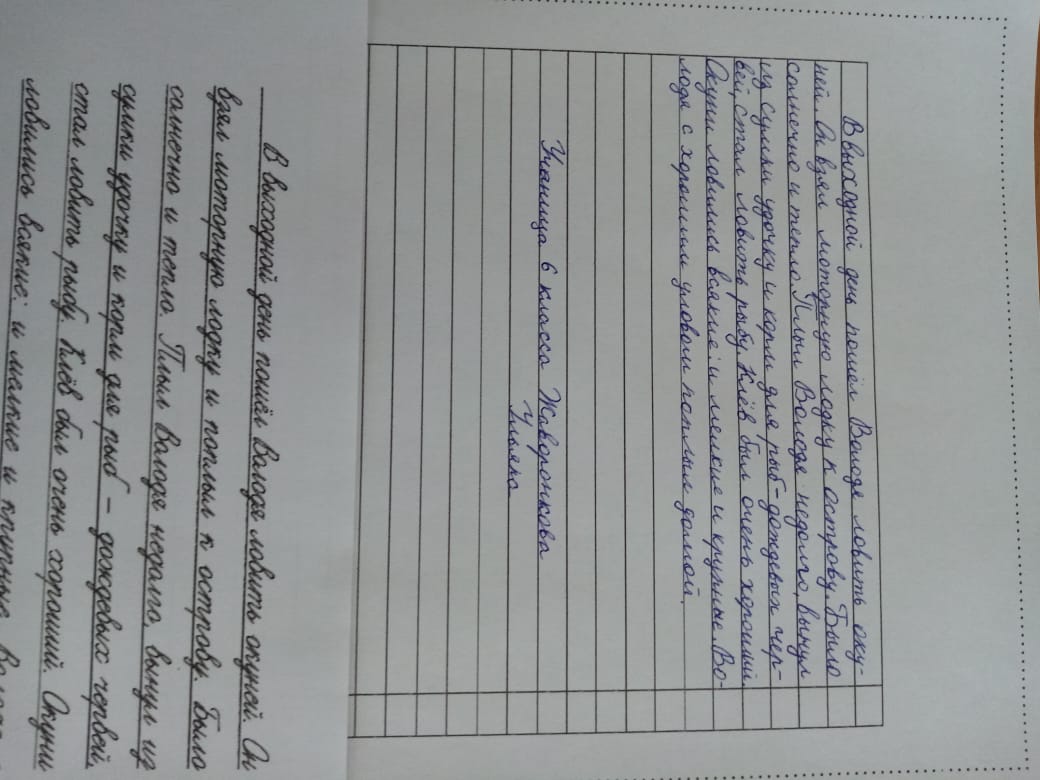 В выходной день пошёл Володя ловить оку-
ней. Он взял моторную лодку к острову. Было
солнечно и тепло. Плыл Володя недолго, вынул
из сумки удочку и корм для рыб – дождевых чер-
вей, стал ловить рыбу. Клёв был очень хороший.
Окуни ловились всякие: и мелкие и крупные. Во-
лодя с хорошим уловом поплыл домой.
Ученица 6 класса Жаворонкова
Ульяна
В выходной день пошёл Володя ловить окуней. Он
взял моторную лодку и поплыл к острову. Было
солнечно и тепло. Плыл Володя недолго, вынул из
сумки удочку и корм для рыб – дождевых червей,
стал ловить рыбу. Клёв был очень хороший. Окуни
ловились всякие: и мелкие и крупные.